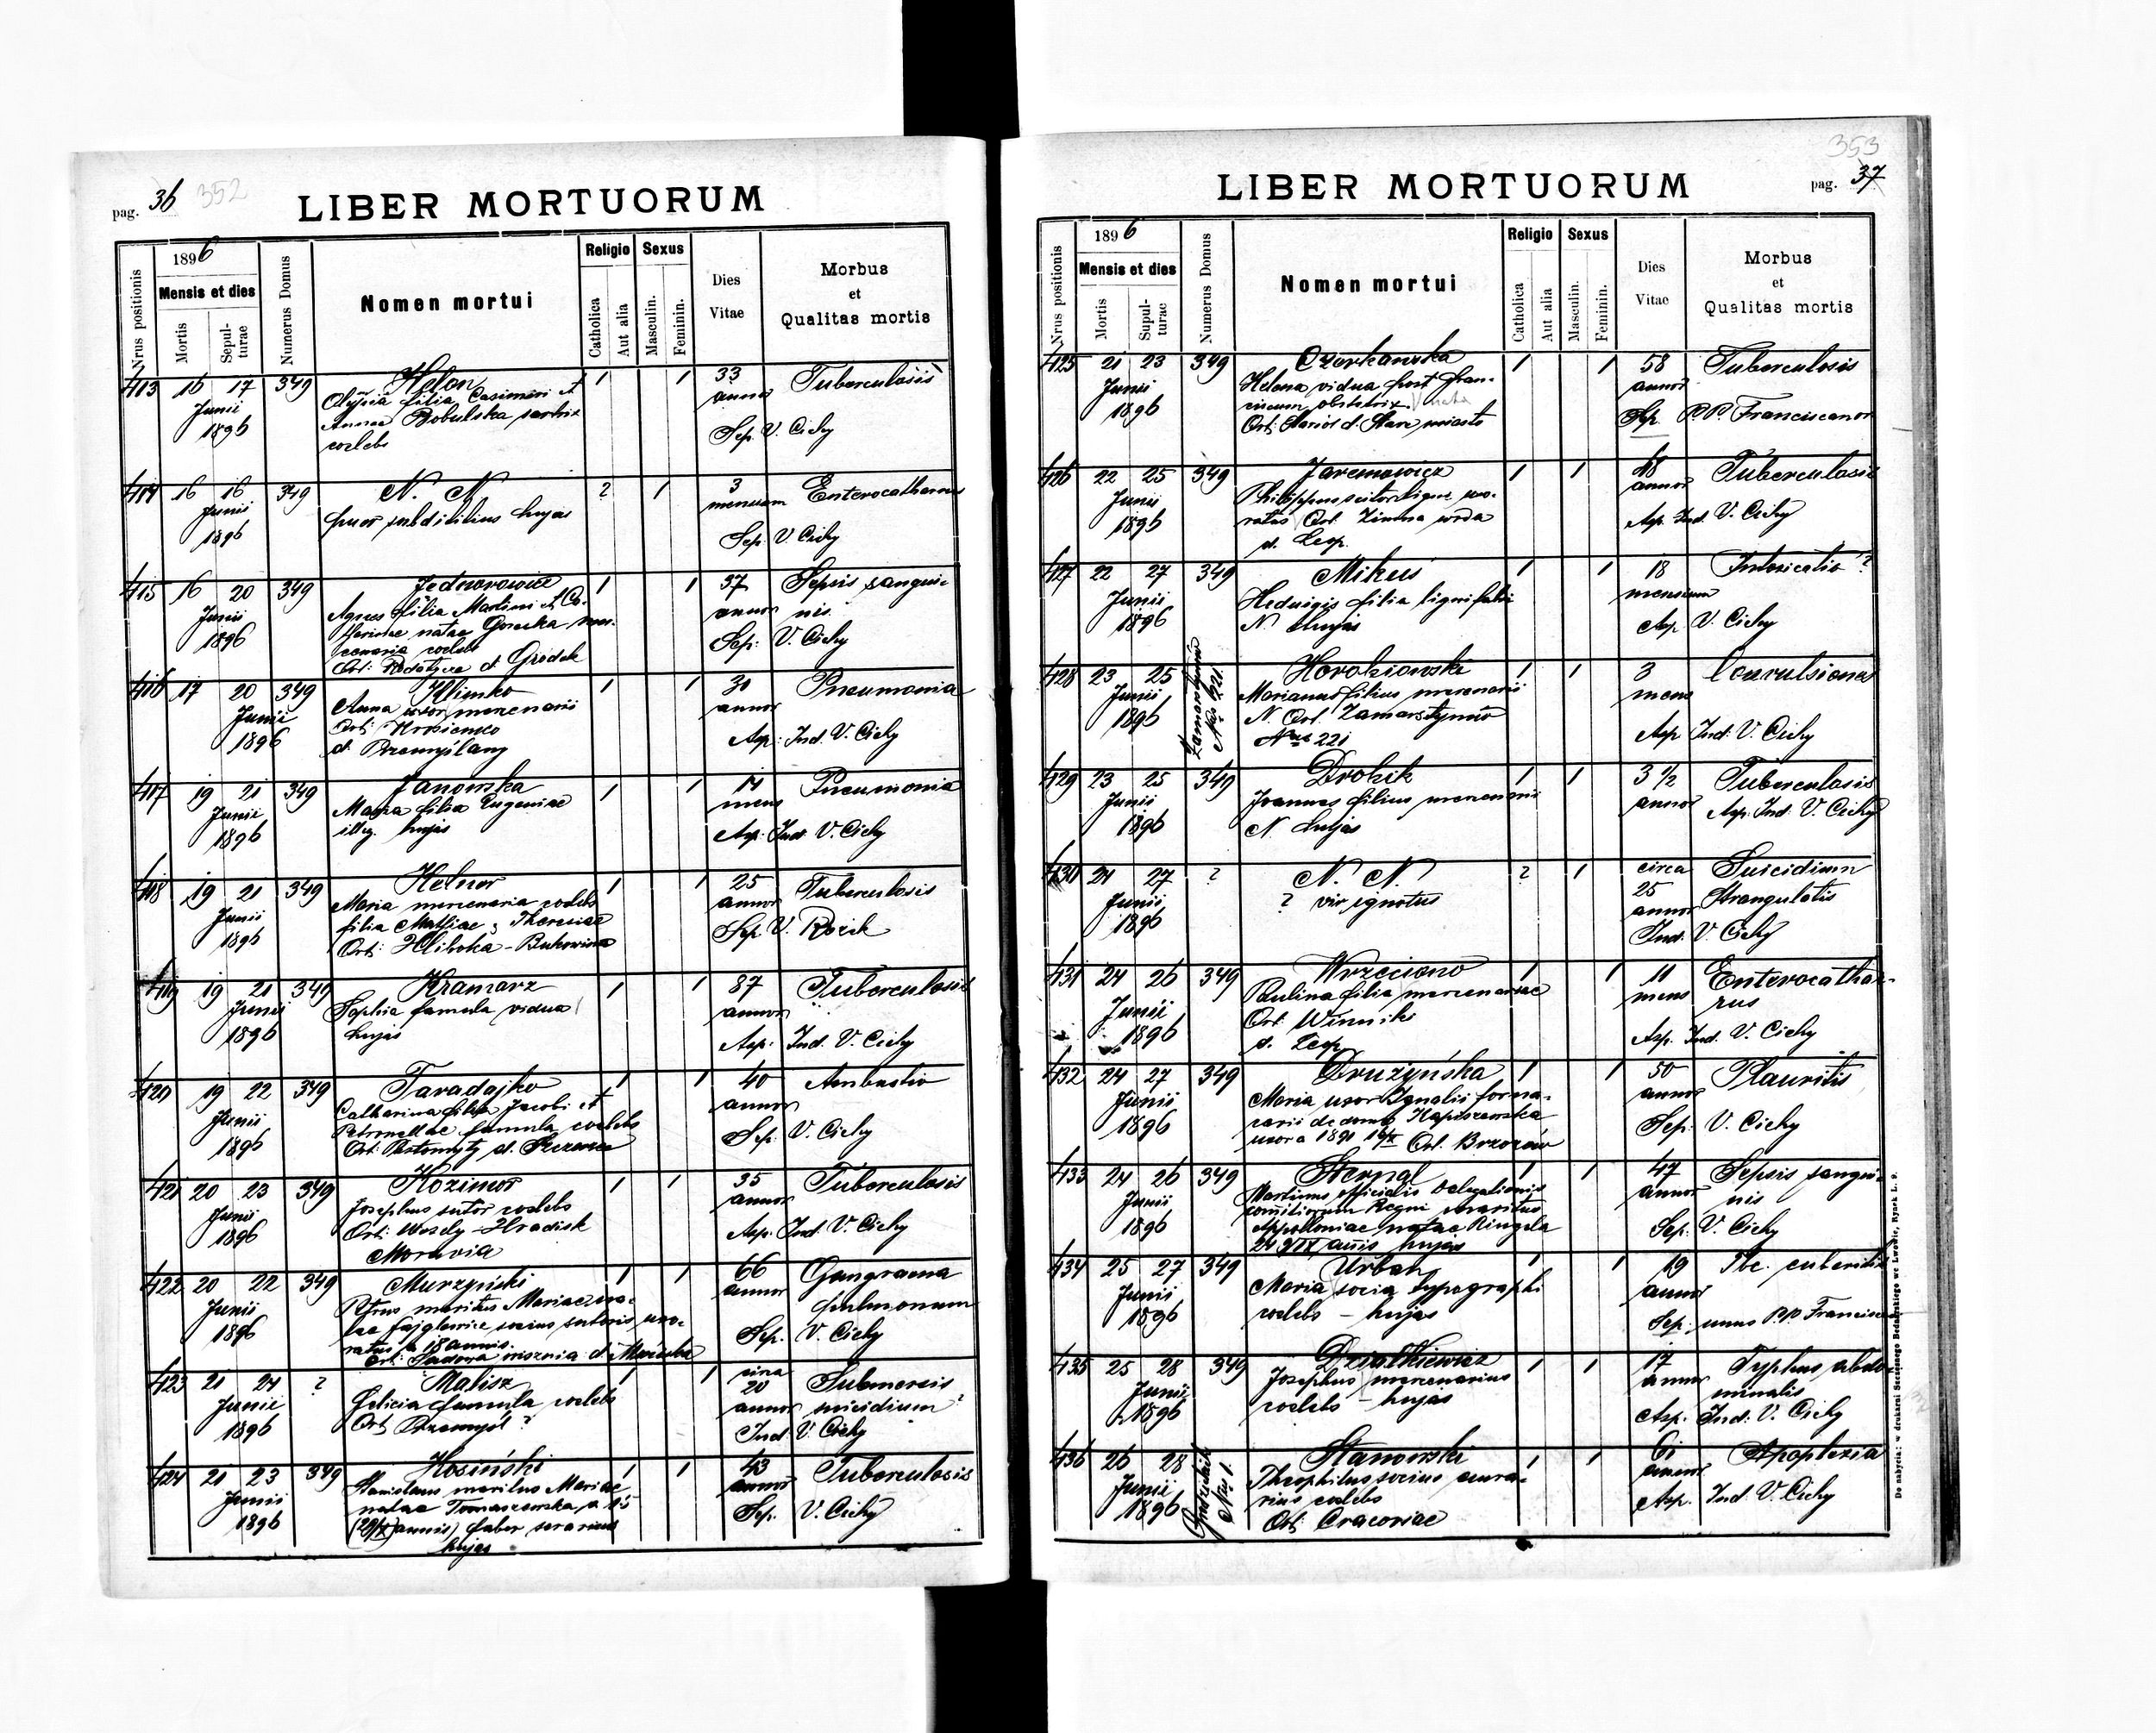 pag. 36 352
LIBER MORTUORUM
Nrus positionis
1896
Mensis et dies
Mortis
Sepulturae
Numerus Domus
Nomen mortui
Religio
Catholica
Aut alia
Sexus
Masculin.
Feminin.
Dies
Vitae
Morbus
et
Qualitas mortis
413 16 17 349 Helon 1 1 33 Tuberculosis
Junii filia Casimiri et annor
1896 Annae Bobulska
coelebs Sep. V. Cichy
414 16 16 349 N. N. ? 1 3
Junii puer subdititius hujas mensium
1896 Sep: V. Cichy
415 16 20 349 1 1 37 Sepsis sangui-
Junii Agnes filia Martini et Ca- annor nis
1896 natae Gorecka Sep: V. Cichy
coelebs
Ort: d. Gródek
416 17 20 349 Klimko 1 1 30 Pneumonia
Junii Anna uxor mercenarii annor
1896 Ort: Krosienko Asp: Ind. V. Cichy
d. Przemyślany
417 19 21 349 Janowska 1 1 14 Pneumonia
Junii Maria filia Eugeniae mens
1896 illeg. hujas Asp: Ind. V. Cichy
418 19 21 349 Helner 1 1 25 Tuberculosis
Junii Maria mercenaria coelebs annor
1896 filia Mathiae, Theresiae Sep. V.
Ort: Hliboka - Bukowina
419 19 21 349 Kramarz 1 1 87 Tuberculosis
Junii Sophia famula vidua annor
1896 hujas Asp: Ind. V. Cichy
420 19 22 349 Taradajko 1 1 40 Ambustio
Junii Catharina filia Jacobi et annor
1896 Petronellae famula coelebs Sep. V. Cichy
Ort: d. Szczerzec
421 20 23 349 1 1 35 Tuberculosis
Junii Josephus sutor coelebs annor
1896 Ort: Wesely - Hradisk Asp: Ind. V. Cichy
Moravia
422 20 22 349 Murzyński 1 1 66 Gangraena
Junii Petrus maritus Mariae annor pulmonum
1896 socius sutoris, uxo- Sep. V. Cichy
ratus a 18 annis.
Ort: Sadowa wisznia d. Mościska
423 21 24 ? Malisz 1 1 circa Submersis
Junii Felicia famula coelebs 20 suicidium?
1896 Ort. Przemyśl? annor
Ind: V. Cichy
424 21 23 349 Kosiński 1 1 43 Tuberculosis
Junii Stanislaus maritus Mariae annor
1896 natae Tomaszewska a 15 Sep. V. Cichy
annis) faber
hujas
353
pag. 37
LIBER MORTUORUM
Nrus positionis
1896
Mensis et dies
Mortis
Supulturae
Numerus Domus
Nomen mortui
Religio
Catholica
Aut alia
Sexus
Masculin.
Feminin.
Dies
Vitae
Morbus
et
Qualitas mortis
425 21 23 349 1 1 58 Tuberculosis
Junii Helena vidua post Fran- annor
1896 ciscum obstetrix. Sep. P.P. Franciscanor
Ort: d. Stare miasto
426 22 25 349 1 1 48 Tuberculosis
Junii Philippus uxo- annor
1896 ratus Ort. Zimna woda Asp. Ind. V. Cichy
d. Leop.
427 22 27 349 Mikuś 1 1 18 Intoxicatio?
Junii Heduigis filia lignifabri mensium
1896 N. hujas Asp. V. Cichy
428 23 25 Zamarstynów Nus 221. 1 1 3 Convulsiones
Junii Marianus filius mercenarii mens
1896 N. Ort. Zamarstynów Asp. Ind. V. Cichy
Nus 221
429 23 25 349 Drobik 1 1 3 1/2 Tuberculosis
Junii Joannes filius mercenarii annor
1896 N. hujas Asp. Ind. V. Cichy
430 24 27 ? N. N. ? 1 circa Suicidium
Junii ? vir ignotus 25 strangulatus
1896 annor
Ind. V. Cichy
431 24 26 349 Wrzeciono 1 1 11 Enterocathar-
Junii Paulina filia mercenariae mens rus
1896 Ort. Winniki Asp. Ind. V. Cichy
d. Leop.
432 24 27 349 Drużyńska 1 1 50 Plauritis
Junii Maria uxor Ignatii forna- annor
1896 carii de domo Kapiszewska Sep: V. Cichy
Ort. Brzozów
433 24 26 349 Sternal 1 1 47 Sepsis sangui-
Junii Martinus officialis Delegationis annor nis
1896 comitiorum Regni maritus Sep: V. Cichy
Appolloniae natae Ringela
hujas
434 25 27 349 Urban 1 1 19 Tbc.
Junii Maria socia typographi annor
1896 coelebs - hujas Sep: P.P. Francisc
435 25 28 349 Dziatkiewicz 1 1 17 Typhus abdo-
Junii Josephus mercenarius annor minalis
1896 coelebs - hujas Asp. Ind: V. Cichy
436 26 28 Nus 1. Stanowski 1 1 61 Apoplexia
Junii Theophilus socius annor
1896 coelebs Asp. Ind. V. Cichy
Ort: Cracoviae
De nabycia: w drukarni Szczęsnego Bednarskiego we Lwowie, Rynek L. 9.